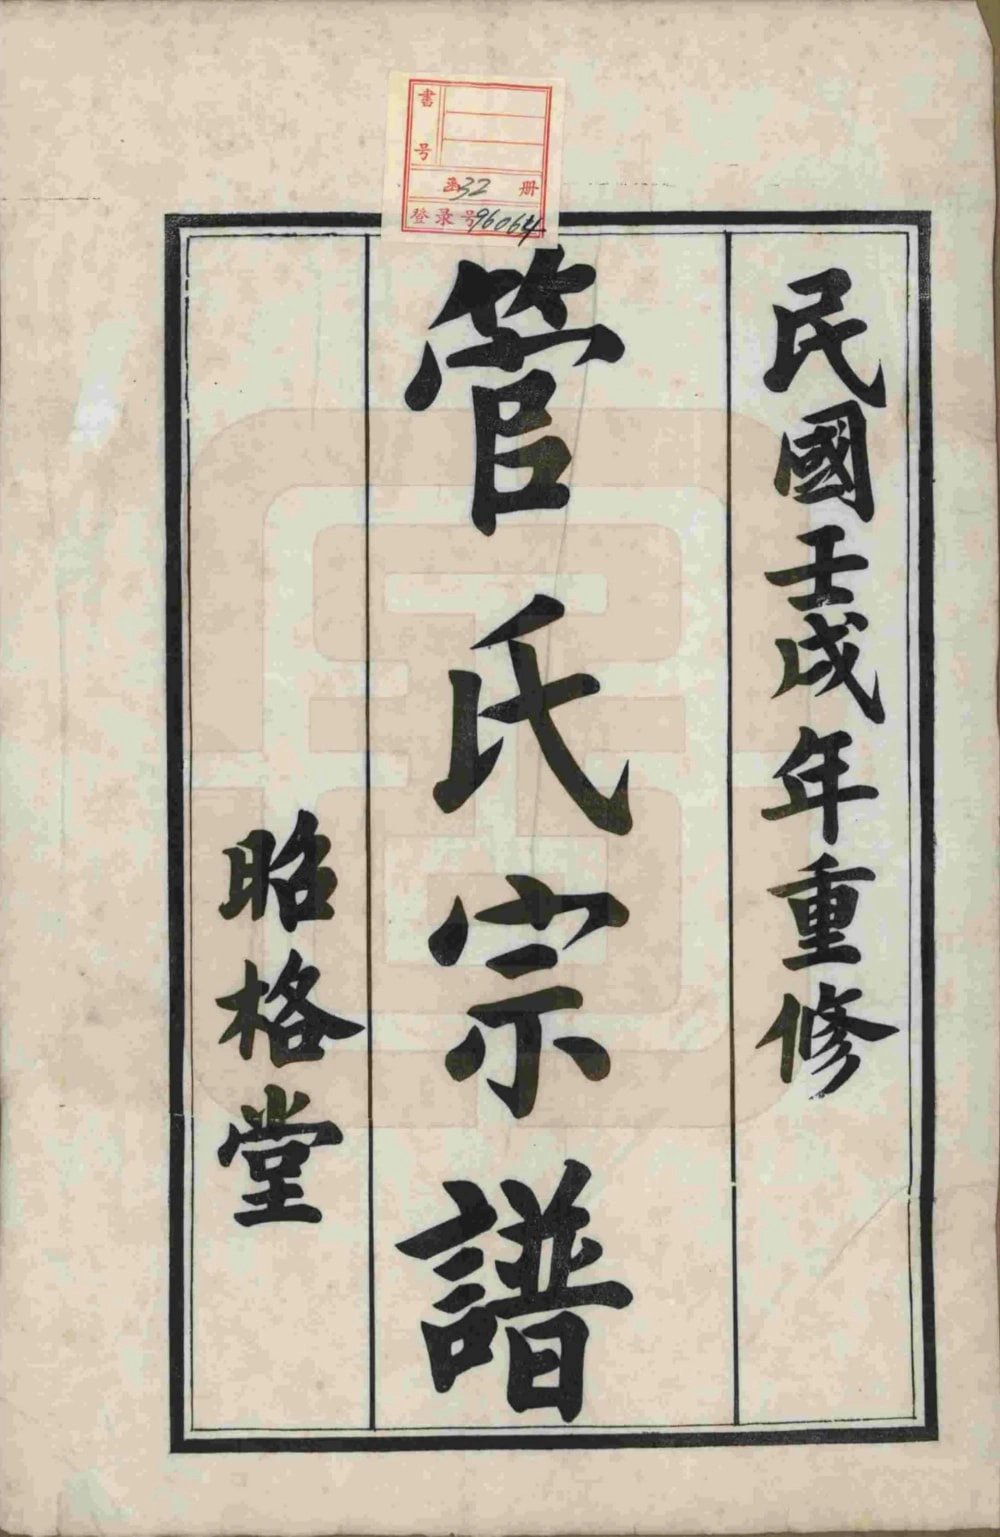 民國壬戌年重修
管氏宗譜
昭格堂
書号
函32 册
登录号96064